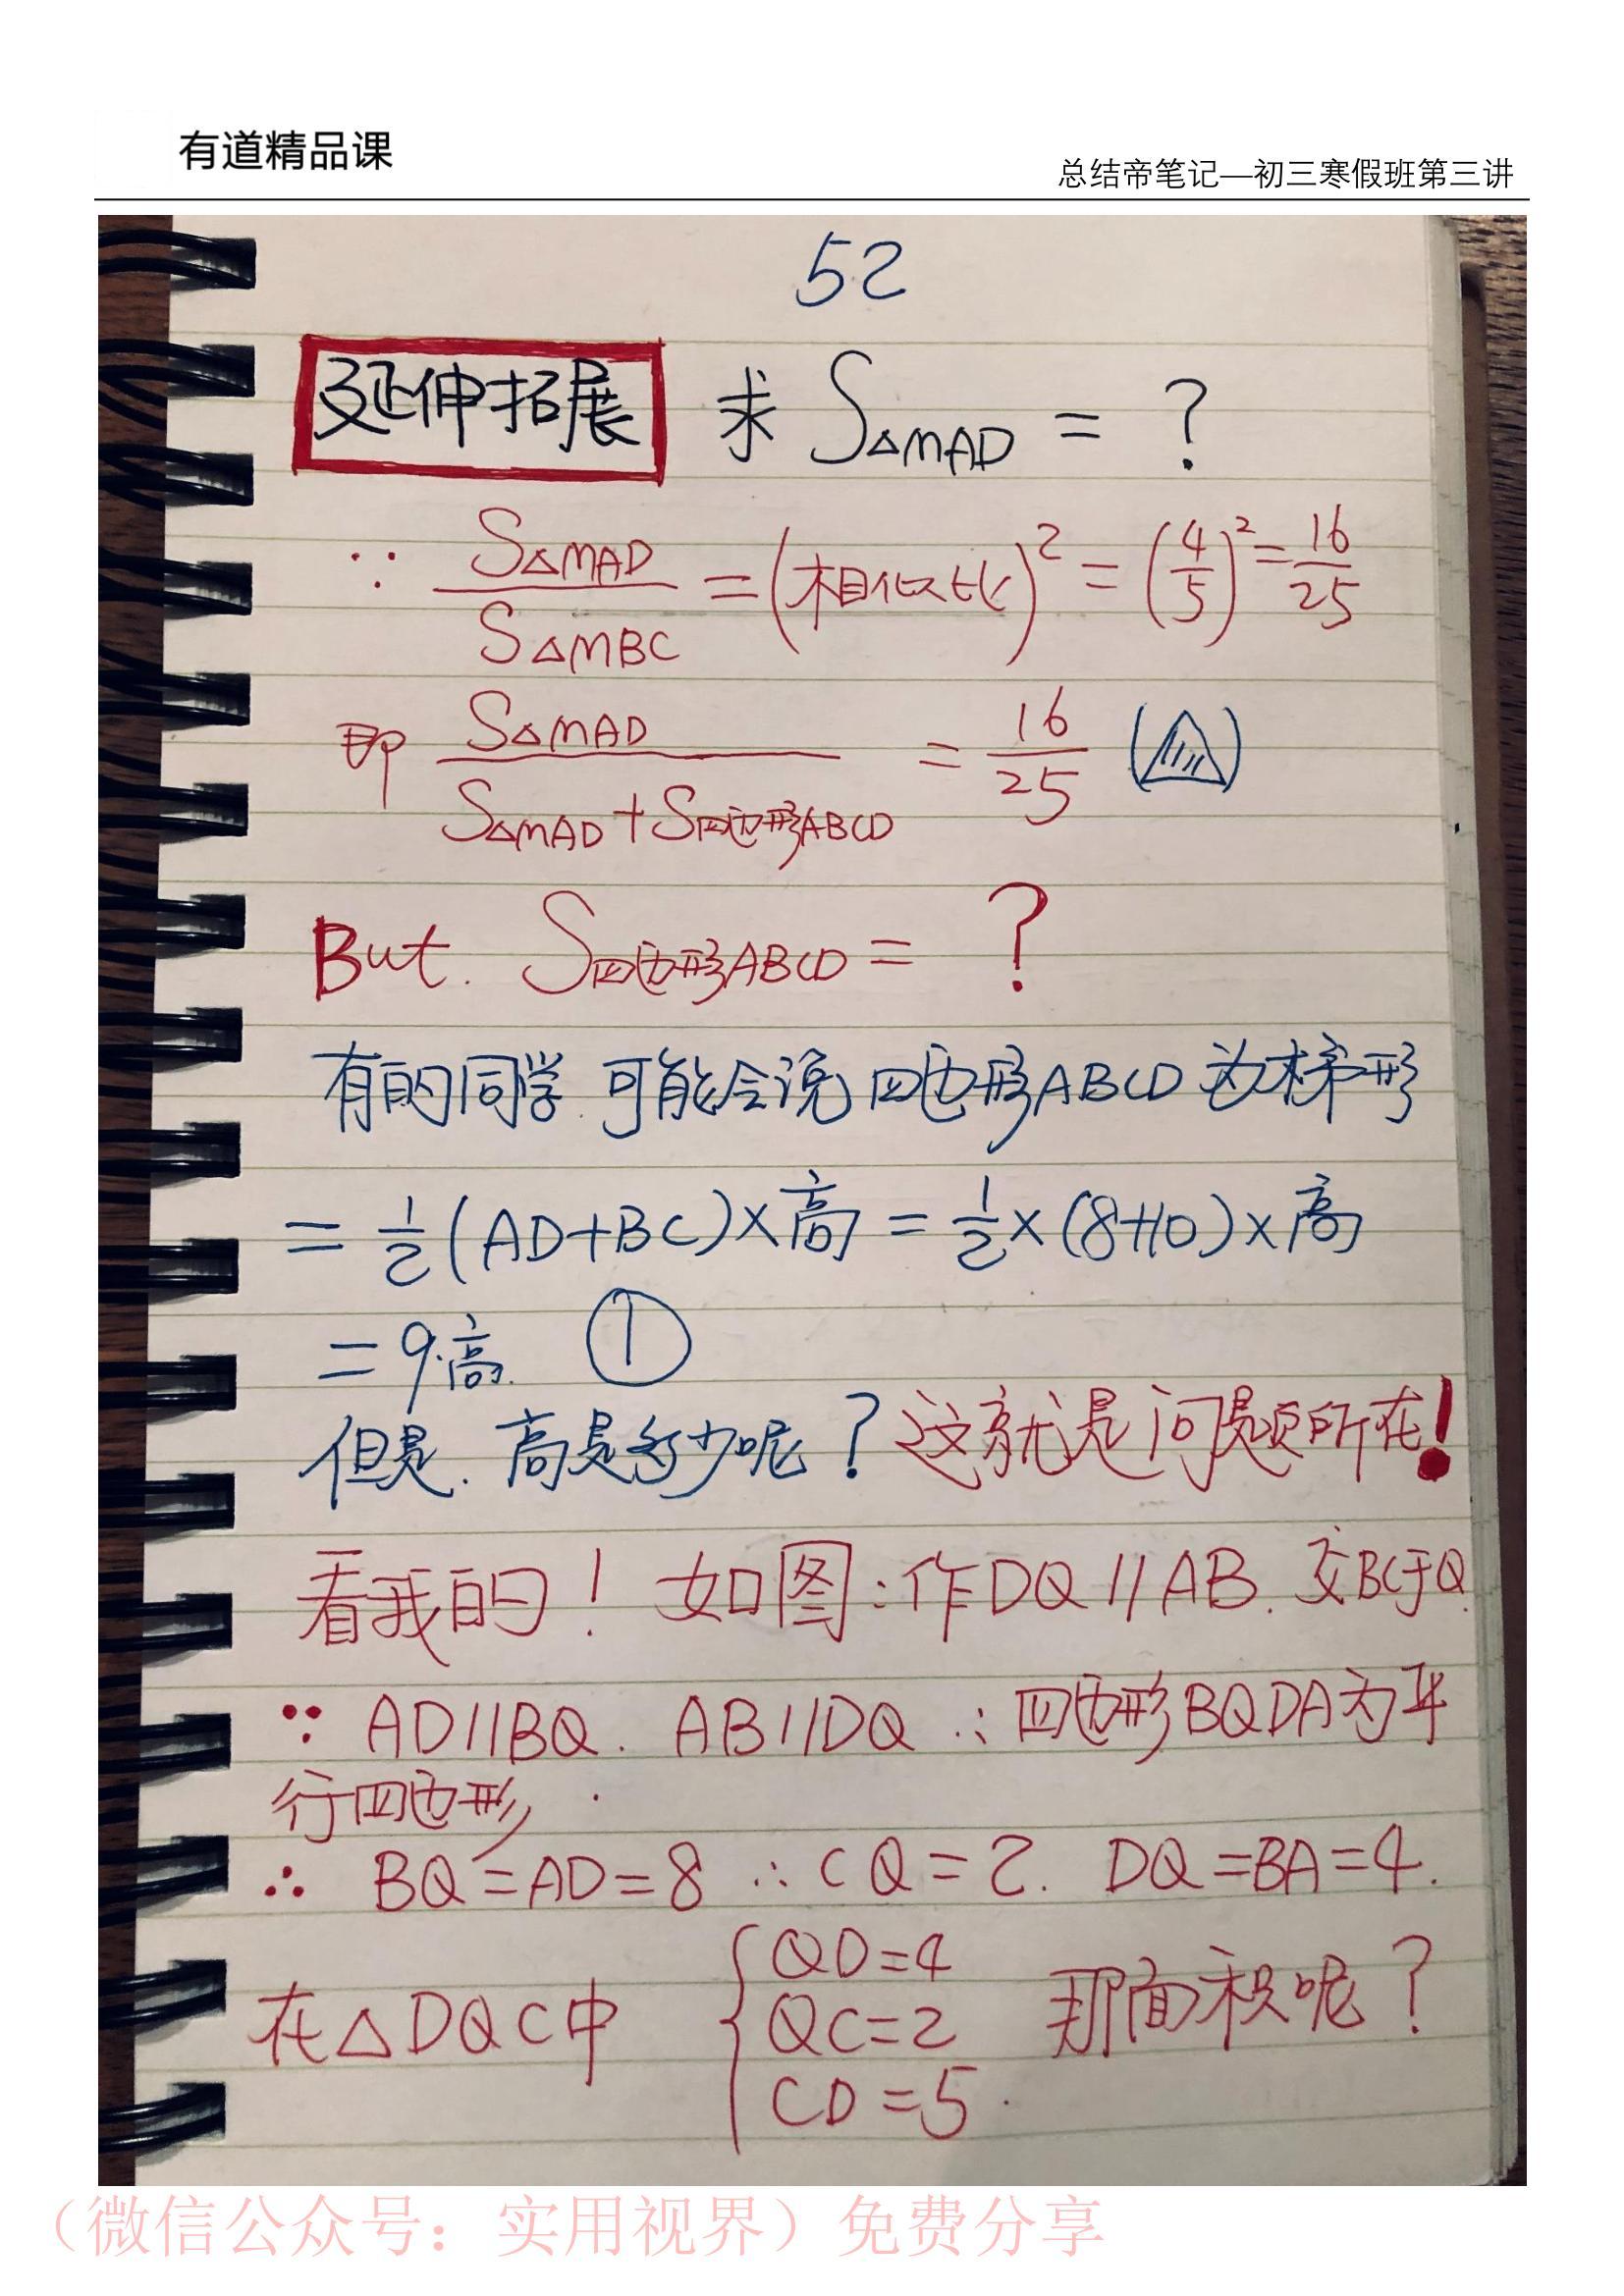 有道精品课
总结帝笔记—初三寒假班第三讲
52
延伸拓展 求 S△MAD = ?
∵ S△MAD/S△MBC = (相似比)² = (4/5)² = 16/25
即 S△MAD/(S△MAD+S四边形ABCD) = 16/25 (△)
But. S四边形ABCD = ?
有的同学.可能会说 四边形ABCD为梯形
= 1/2(AD+BC)×高 = 1/2×(8+10)×高
= 9·高. ①
但是.高是多少呢?这就是问题所在!
看我的! 如图:作DQ//AB.交BC于Q
∵ AD//BQ. AB//DQ ∴四边形BQDA为平
行四边形.
∴ BQ=AD=8 ∴CQ=2. DQ=BA=4.
在△DQC中 { QD=4
QC=2 那面积呢?
CD=5.
(微信公众号:实用视界)免费分享